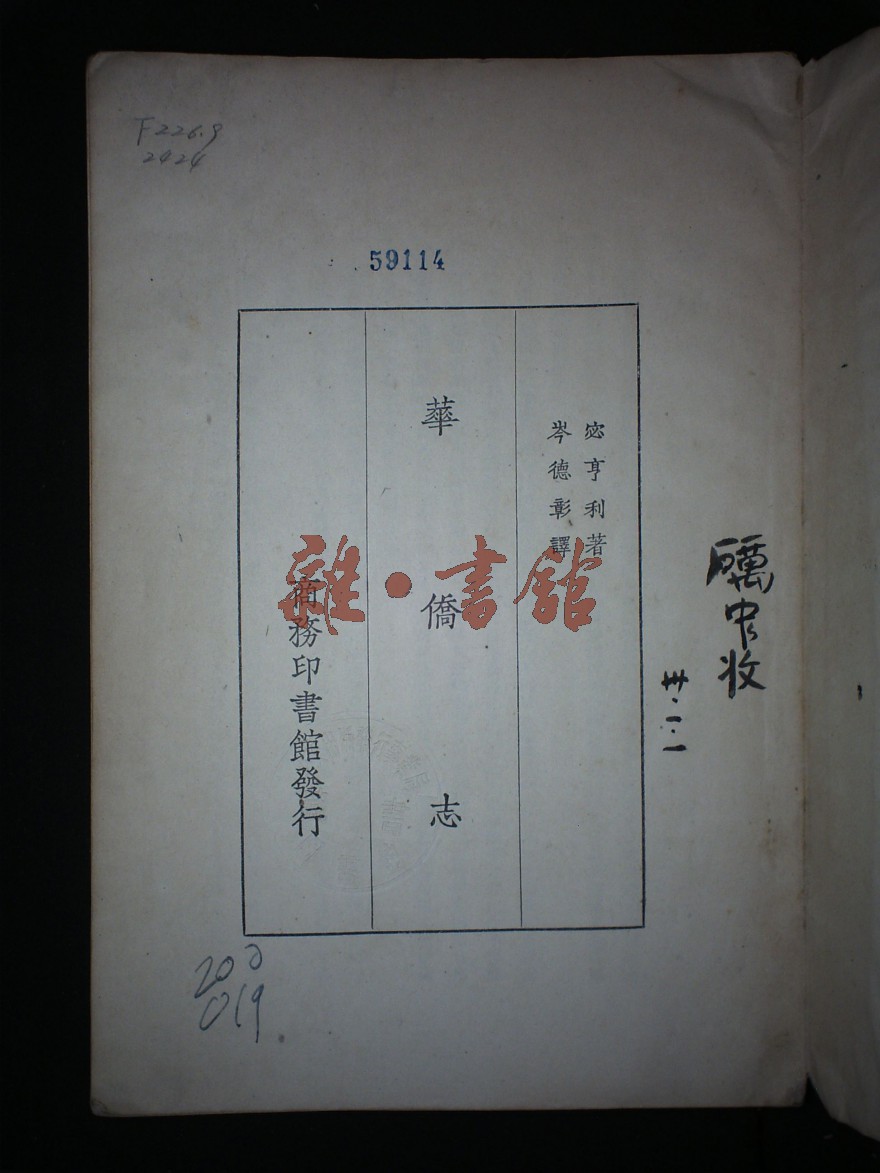 F226.9
2424
59114
宓亨利著
岑德彰譯
華僑志
商務印書館發行
雜·書館
卅·二·一
200
019